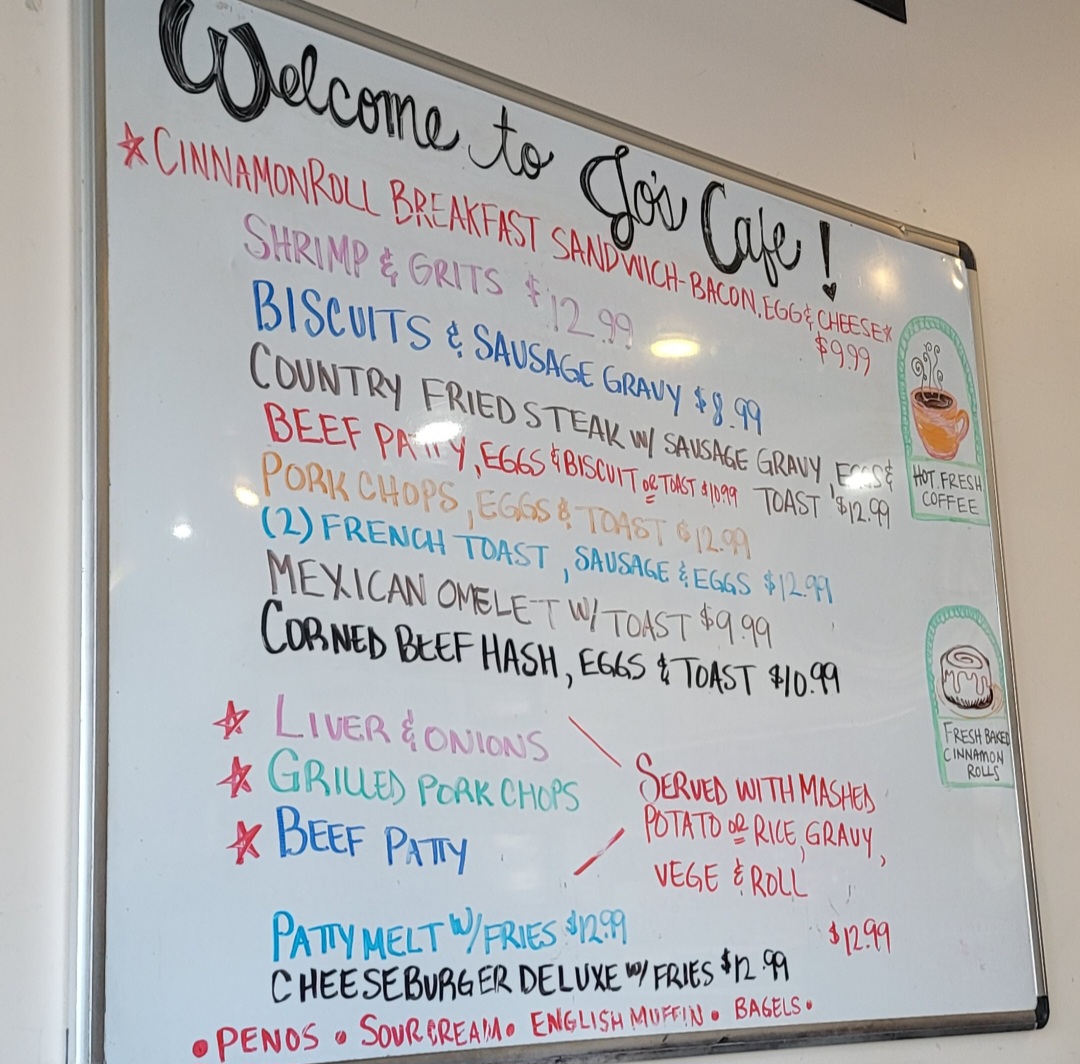 Welcome to Jo's Cafe!
☆CINNAMONROLL BREAKFAST SANDWICH-BACON, EGG & CHEESE*
$9.99
SHRIMP & GRITS $12.99
BISCUITS & SAUSAGE GRAVY $8.99
COUNTRY FRIED STEAK W/ SAUSAGE GRAVY, EGGS &
TOAST $12.99
BEEF PATTY, EGGS & BISCUIT OR TOAST $10.99
PORK CHOPS, EGGS & TOAST $12.99
(2) FRENCH TOAST, SAUSAGE & EGGS $12.99
MEXICAN OMELET W/ TOAST $9.99
CORNED BEEF HASH, EGGS & TOAST $10.99
HOT FRESH
COFFEE
FRESH BAKED
CINNAMON
ROLLS
☆ LIVER & ONIONS
☆ GRILLED PORK CHOPS
☆ BEEF PATTY
SERVED WITH MASHED
POTATO OR RICE, GRAVY,
VEGE & ROLL
$12.99
PATTY MELT W/FRIES $12.99
CHEESEBURGER DELUXE W/ FRIES $12.99
• PENOS • SOUR CREAM • ENGLISH MUFFIN • BAGELS •